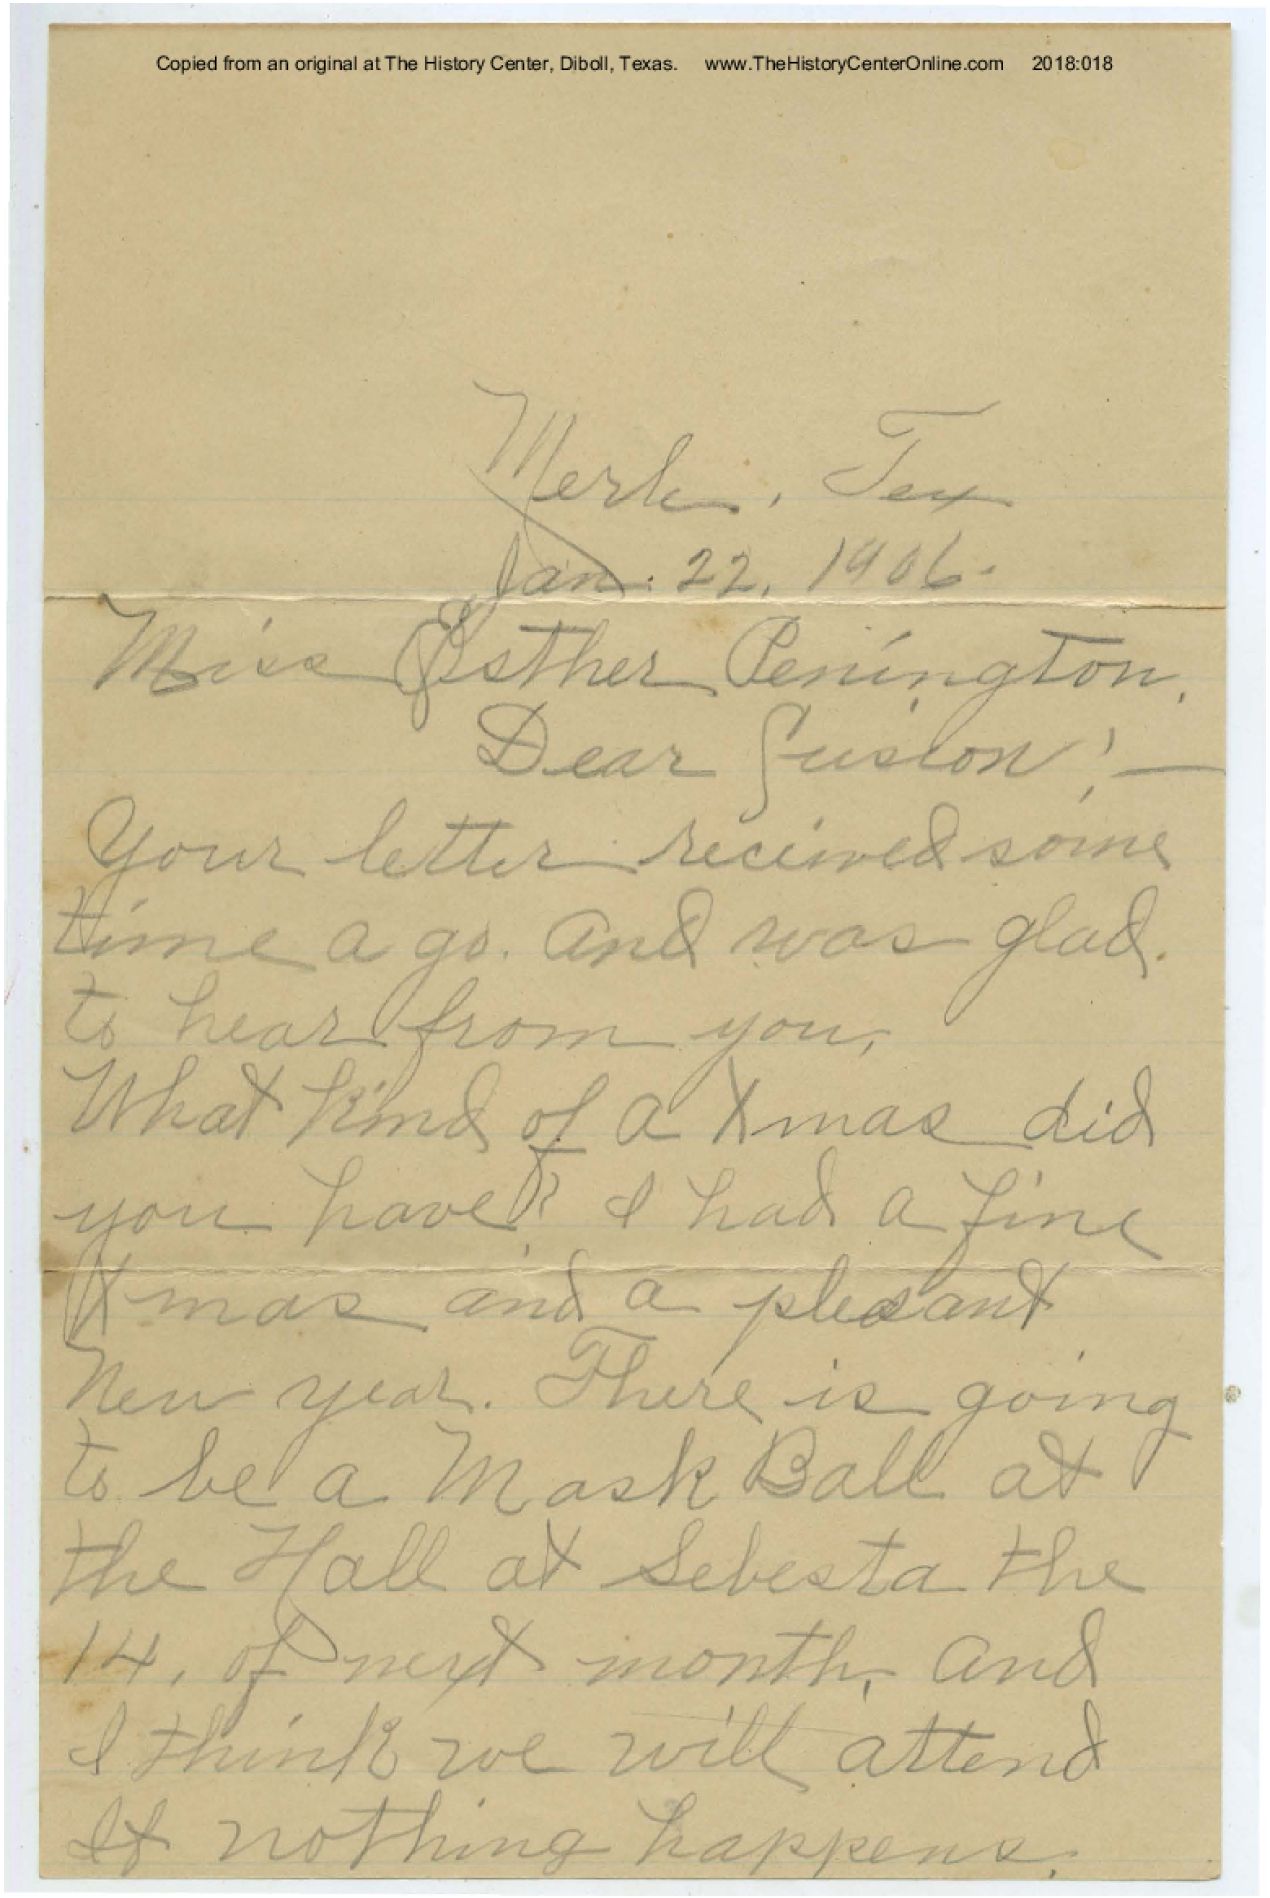 Copied from an original at The History Center, Diboll, Texas. www.TheHistoryCenterOnline.com 2018:018
Merle, Tex
Jan. 22, 1906.
Miss Esther Penington,
Dear :—
Your letter received some
time a go. and was glad.
to hear from you,
What kind of a Xmas did
you have? I had a fine
Xmas and a pleasant
New year. There is going
to be a Mask Ball at
the Hall at Sebesta the
14, of next month, and
I think we will attend
If nothing happens.